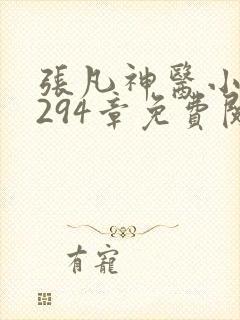 張凡神醫小
294章免費閱
有寵